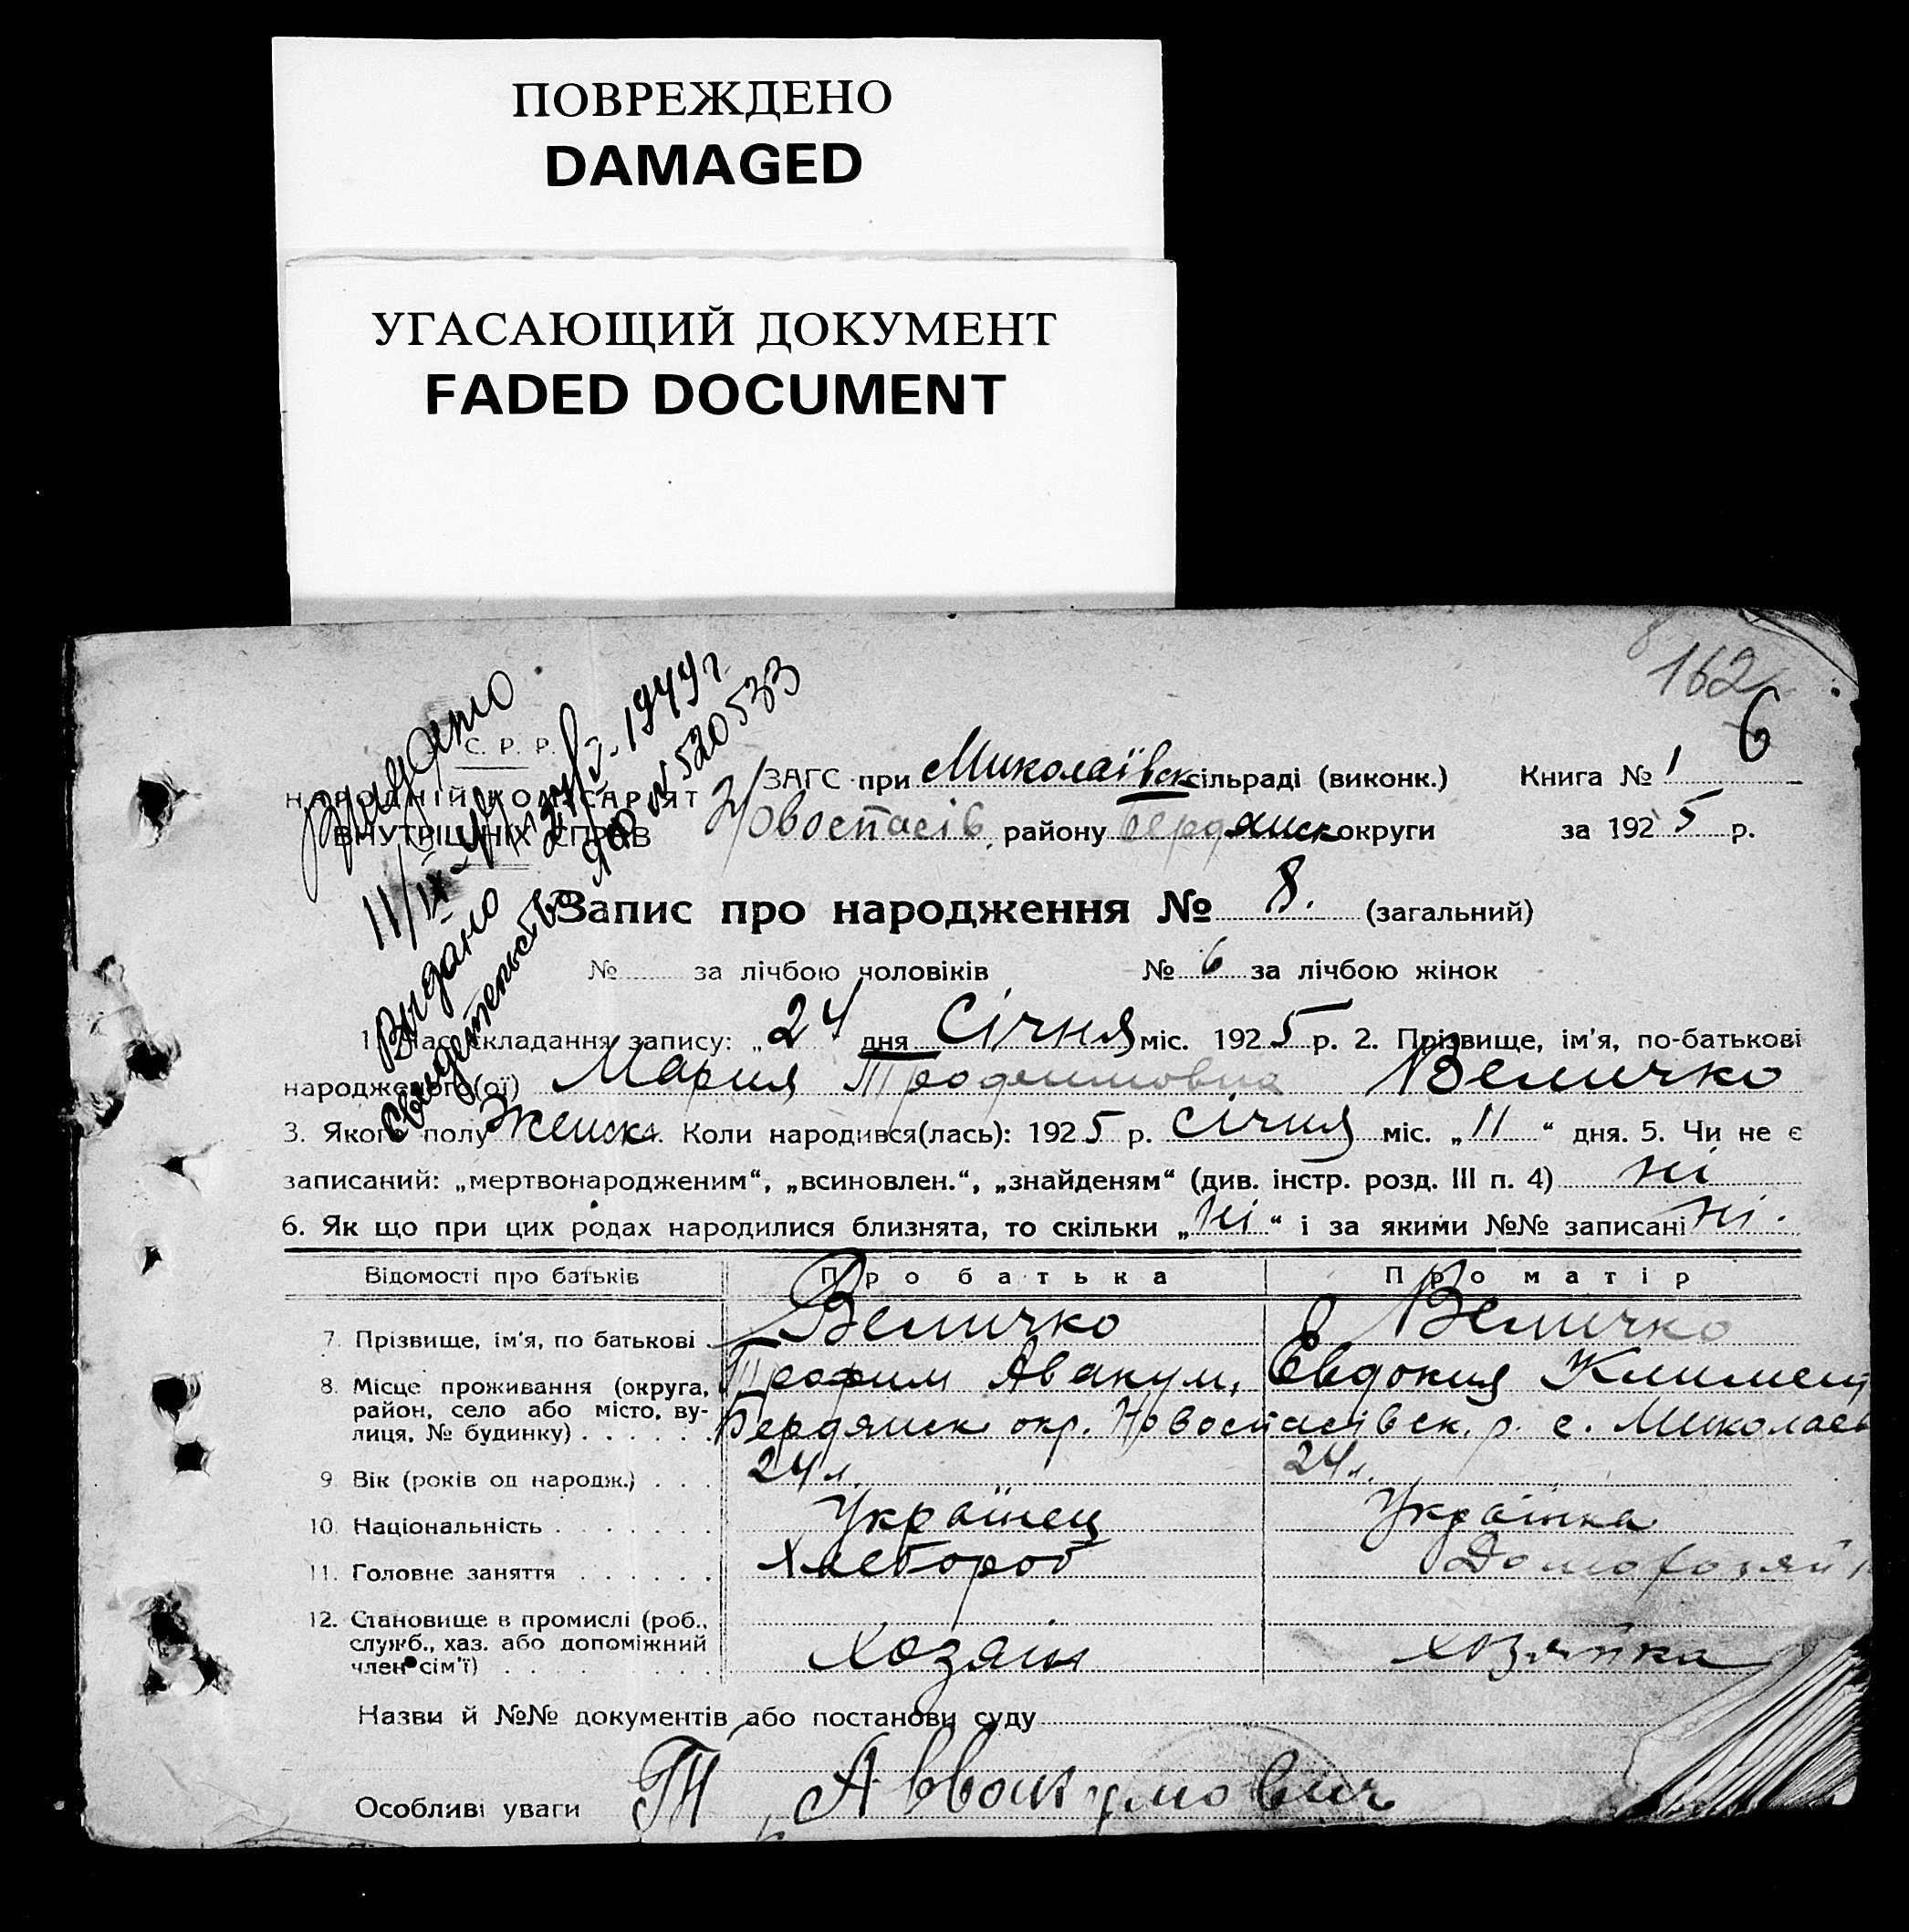 ПОВРЕЖДЕНО
DAMAGED
УГАСАЮЩИЙ ДОКУМЕНТ
FADED DOCUMENT
162
6
С. Р. Р.
НАРОДНІЙ КОМІСАРІЯТ
ВНУТРІШНІХ СПРАВ
11/II
Выдано
свидетельство № 520533
1949 г.
ЗАГС при Миколаївск сільраді (виконк.) Книга № 1
Новоспасів. району Бердянск округи за 1925 р.
Запис про народження № 8. (загальний)
№ за лічбою чоловіків № 6 за лічбою жінок
1. Час складання запису: „24 дня Січня міс. 1925 р. 2. Прізвище, ім'я, по-батькові
народженого(ої) Мария Трофимовна Величко
3. Якого полу Женск. Коли народився(лась): 1925 р. січня міс. „11“ дня. 5. Чи не є
записаний: „мертвонародженим“, „всиновлен.“, „знайденям“ (див. інстр. розд. III п. 4) ні
6. Як що при цих родах народилися близнята, то скільки „ні“ і за якими №№ записані ні.
Відомості про батьків Про батька Про матір
7. Прізвище, ім'я, по батькові Величко Величко
Трофим Авакум, Евдокия Климент
8. Місце проживання (округа,
район, село або місто, ву-
лиця, № будинку) Бердянск окр. Новоспасівск. р. с. Миколаев
9. Вік (років од народж.) 24 л. 24 л.
10. Національність Українец Українка
11. Головне заняття Хлебороб Домохозяйк
12. Становище в промислі (роб.,
служб., хаз. або допоміжний
член сім'ї) Хозяін хозяйка
Назви й №№ документів або постанови суду
Особливі уваги Аввакумович